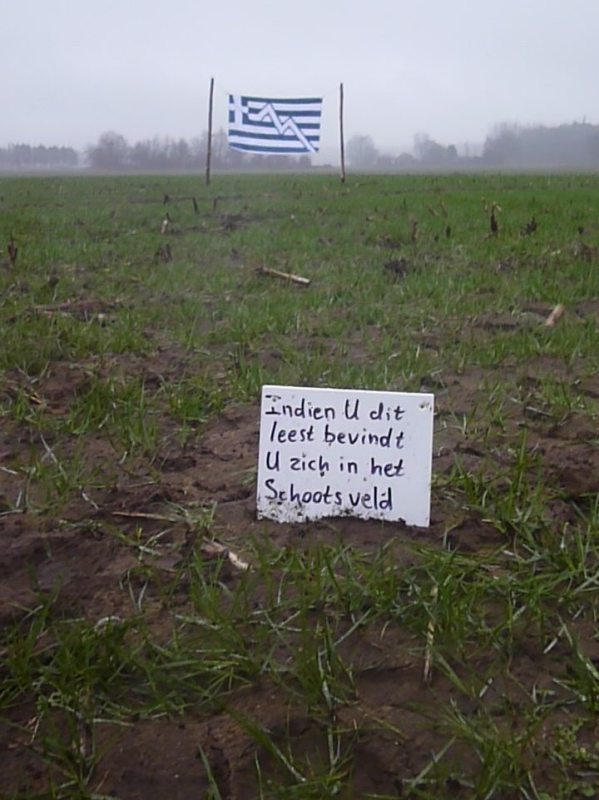 Indien U dit
leest bevindt
U zich in het
Schootsveld